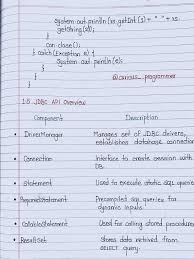 System.out.println (rs.getInt(1) + " " + rs.
getString(2));
}
con.close();
} catch (Exception e) {
System.out.println (e);
}
}
}
@curious_programmer
1.8 JDBC API Overview
Component Description
• DriverManager Manages set of JDBC drivers,
establishes database connection
• Connection Interface to create session with
DB.
• Statement Used to execute static SQL queries
• PreparedStatement Precompiled SQL queries for
dynamic inputs.
• CallableStatement Used for calling stored procedures
• ResultSet Stores data retrived from
SELECT query.